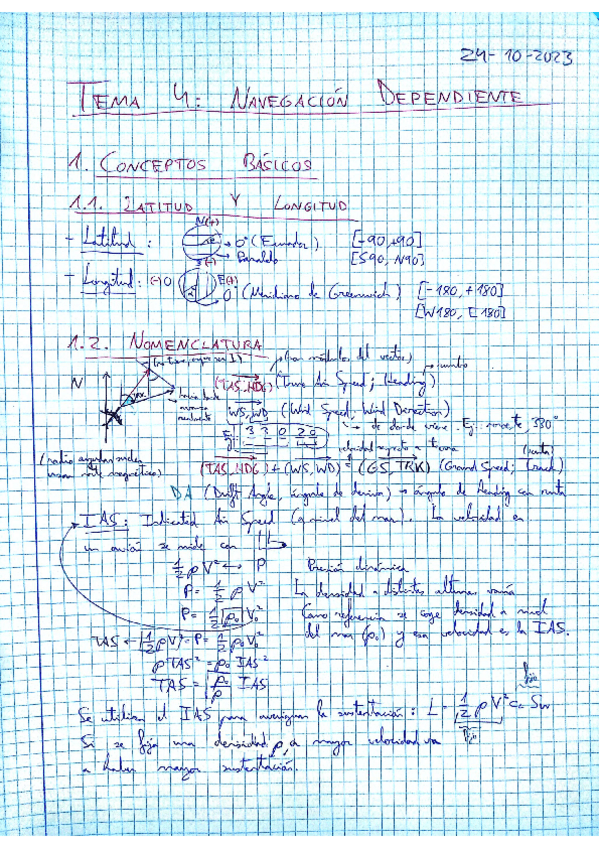 24-10-2023
TEMA 4: NAVEGACIÓN DEPENDIENTE
1. CONCEPTOS BÁSICOS
1.1. LATITUD Y LONGITUD
N(+)
- Latitud: → 0° (Ecuador) [-90,+90]
S(-) Paralelo [S90, N90]
- Longitud: (-)O E(+)
0° (Meridiano de Greenwich) [-180,+180]
[W180, E180]
1.2. NOMENCLATURA
(son módulo del vector)
rumbo
N (TAS,HDG) (True Air Speed; Heading)
(WS,WD) (Wind Speed, Wind Direction)
→ de donde viene. Ej: noroeste, 330°
Ej: 33020
velocidad respecto a tierra (ruta)
(TAS,HDG) + (WS,WD) = (GS,TRK) (Ground Speed; Track)
usan norte magnético)
DA (Drift Angle, ángulo de deriva) → ángulo de Heading con ruta
IAS: Indicated Air Speed (a nivel del mar). La velocidad en
un avión se mide con
1/2 ρV² ↔ P Presión dinámica
P = 1/2 ρV² La densidad a distintas alturas varía
P = 1/2 ρ₀ V₀² Como referencia se coge densidad a nivel
del mar (ρ₀) y esa velocidad es la IAS.
TAS ← 1/2 ρV² = P = 1/2 ρ₀V₀²
ρ TAS² = ρ₀ IAS²
TAS = √(ρ₀/ρ) IAS
fijo
Se utiliza el IAS para averiguar la sustentación: L = 1/2 ρV² c_L Sw
fijo
Si se fija una densidad ρ, a mayor velocidad va
a haber mayor sustentación.